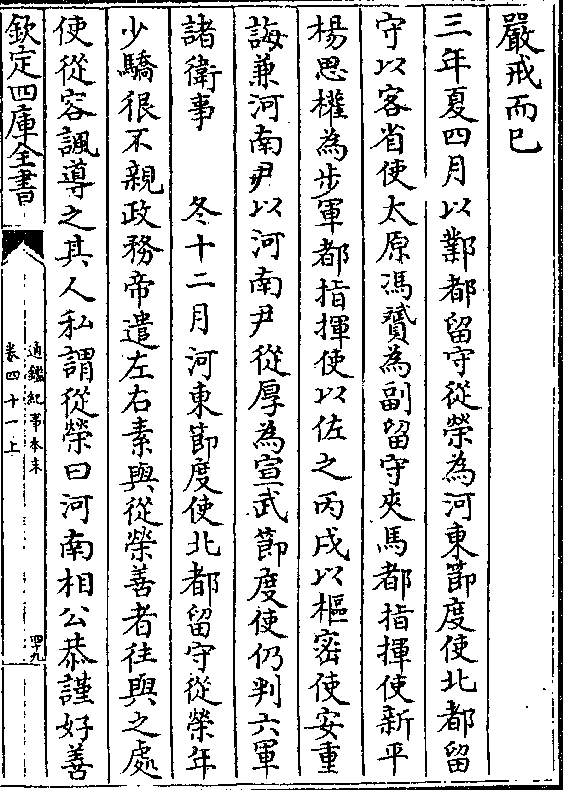 嚴戒而已
三年夏四月以鄴都留守從榮為河東節度使北都留
守以客省使太原馮贇為副留守夾馬都指揮使新平
楊思權為步軍都指揮使以佐之丙戌以樞密使安重
誨兼河南尹以河南尹從厚為宣武節度使仍判六軍
諸衛事　冬十二月河東節度使北都留守從榮年
少驕很不親政務帝遣左右素與從榮善者往與之處
使從容諷導之其人私謂從榮曰河南相公恭謹好善
欽定四庫全書
通鑑紀事本末
卷四十一上
四十九